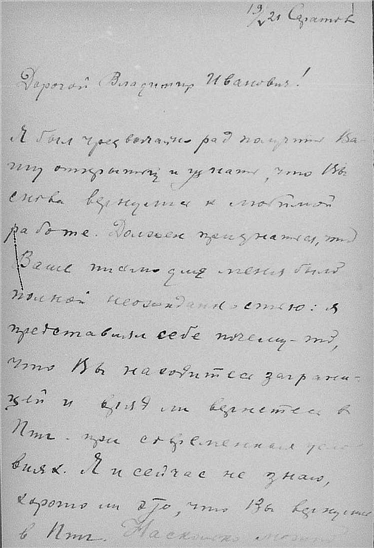 19/V 21 Саратов
Дорогой Владимир Иванович!
Я был чрезвычайно рад получить Ва-
шу открытку и узнать, что Вы
снова вернулись к любимой
работе. Должен признаться, что
Ваше письмо для меня было
полной неожиданностью: я
представлял себе почему-то,
что Вы находитесь заграни-
цей и вряд ли вернетесь в
Птг. при современных усло-
виях. Я и сейчас не знаю,
хорошо ли это, что Вы вернулись
в Птг. Насколько можно